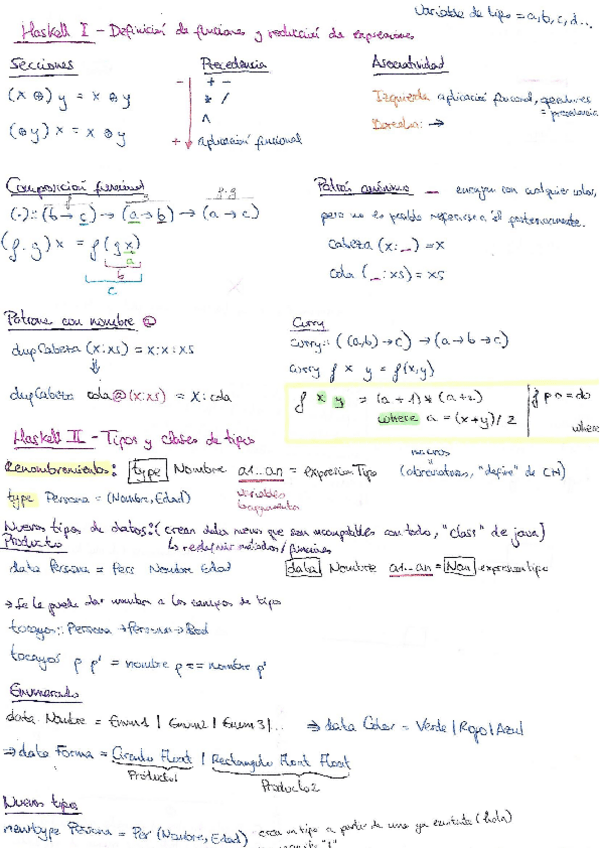 Variable de tipo = a, b, c, d...
Haskell I - Definición de funciones y reducción de expresiones
Secciones
(x ⊕) y = x ⊕ y
(⊕ y) x = x ⊕ y
Precedencia
- + -
* /
^
+ aplicación funcional
Asociatividad
Izquierda aplicación funcional, operadores
= precedencia
Derecha: →
Composición funcional
f.g
(.) :: (b → c) → (a → b) → (a → c)
(f . g) x = f (g x)
a
b
c
Patrón anónimo _ encajan con cualquier valor,
pero no es posible referirse a él posteriormente.
cabeza (x:_) = x
cola (_:xs) = xs
Patrone con nombre @
dupCabeza (x:xs) = x:x:xs
↓
dupCabeza cola@(x:xs) = x:cola
Curry
curry :: ((a,b) → c) → (a → b → c)
curry f x y = f(x,y)
f x y = (a + 1) * (a + 2)
where a = (x+y) / 2
where
Haskell II - Tipos y clases de tipos
Renombramientos: type Nombre a1...an = expresionTipo
macros
(abreviaturas, "define" de C)
variables
type Persona = (Nombre, Edad)
Nuevos tipos de datos: (crean datos nuevos que son incompatibles con todo, "class" de java)
↳ redefinir métodos / funciones
Producto
data Persona = Pers Nombre Edad
data Nombre a1...an = Nom expresiontipo
→ Se le puede dar nombre a los campos de tipos
tocayos :: Persona → Persona → Bool
tocayos p p' = nombre p == nombre p'
Enumerado
data Nombre = Enum1 | Enum2 | Enum3 | ... ⇒ data Color = Verde | Rojo | Azul
⇒ data Forma = Circulo Float | Rectangulo Float Float
Producto1
Producto2
Nuevos tipos
newtype Persona = Per (Nombre, Edad) crea un tipo a partir de uno ya existente (hola)